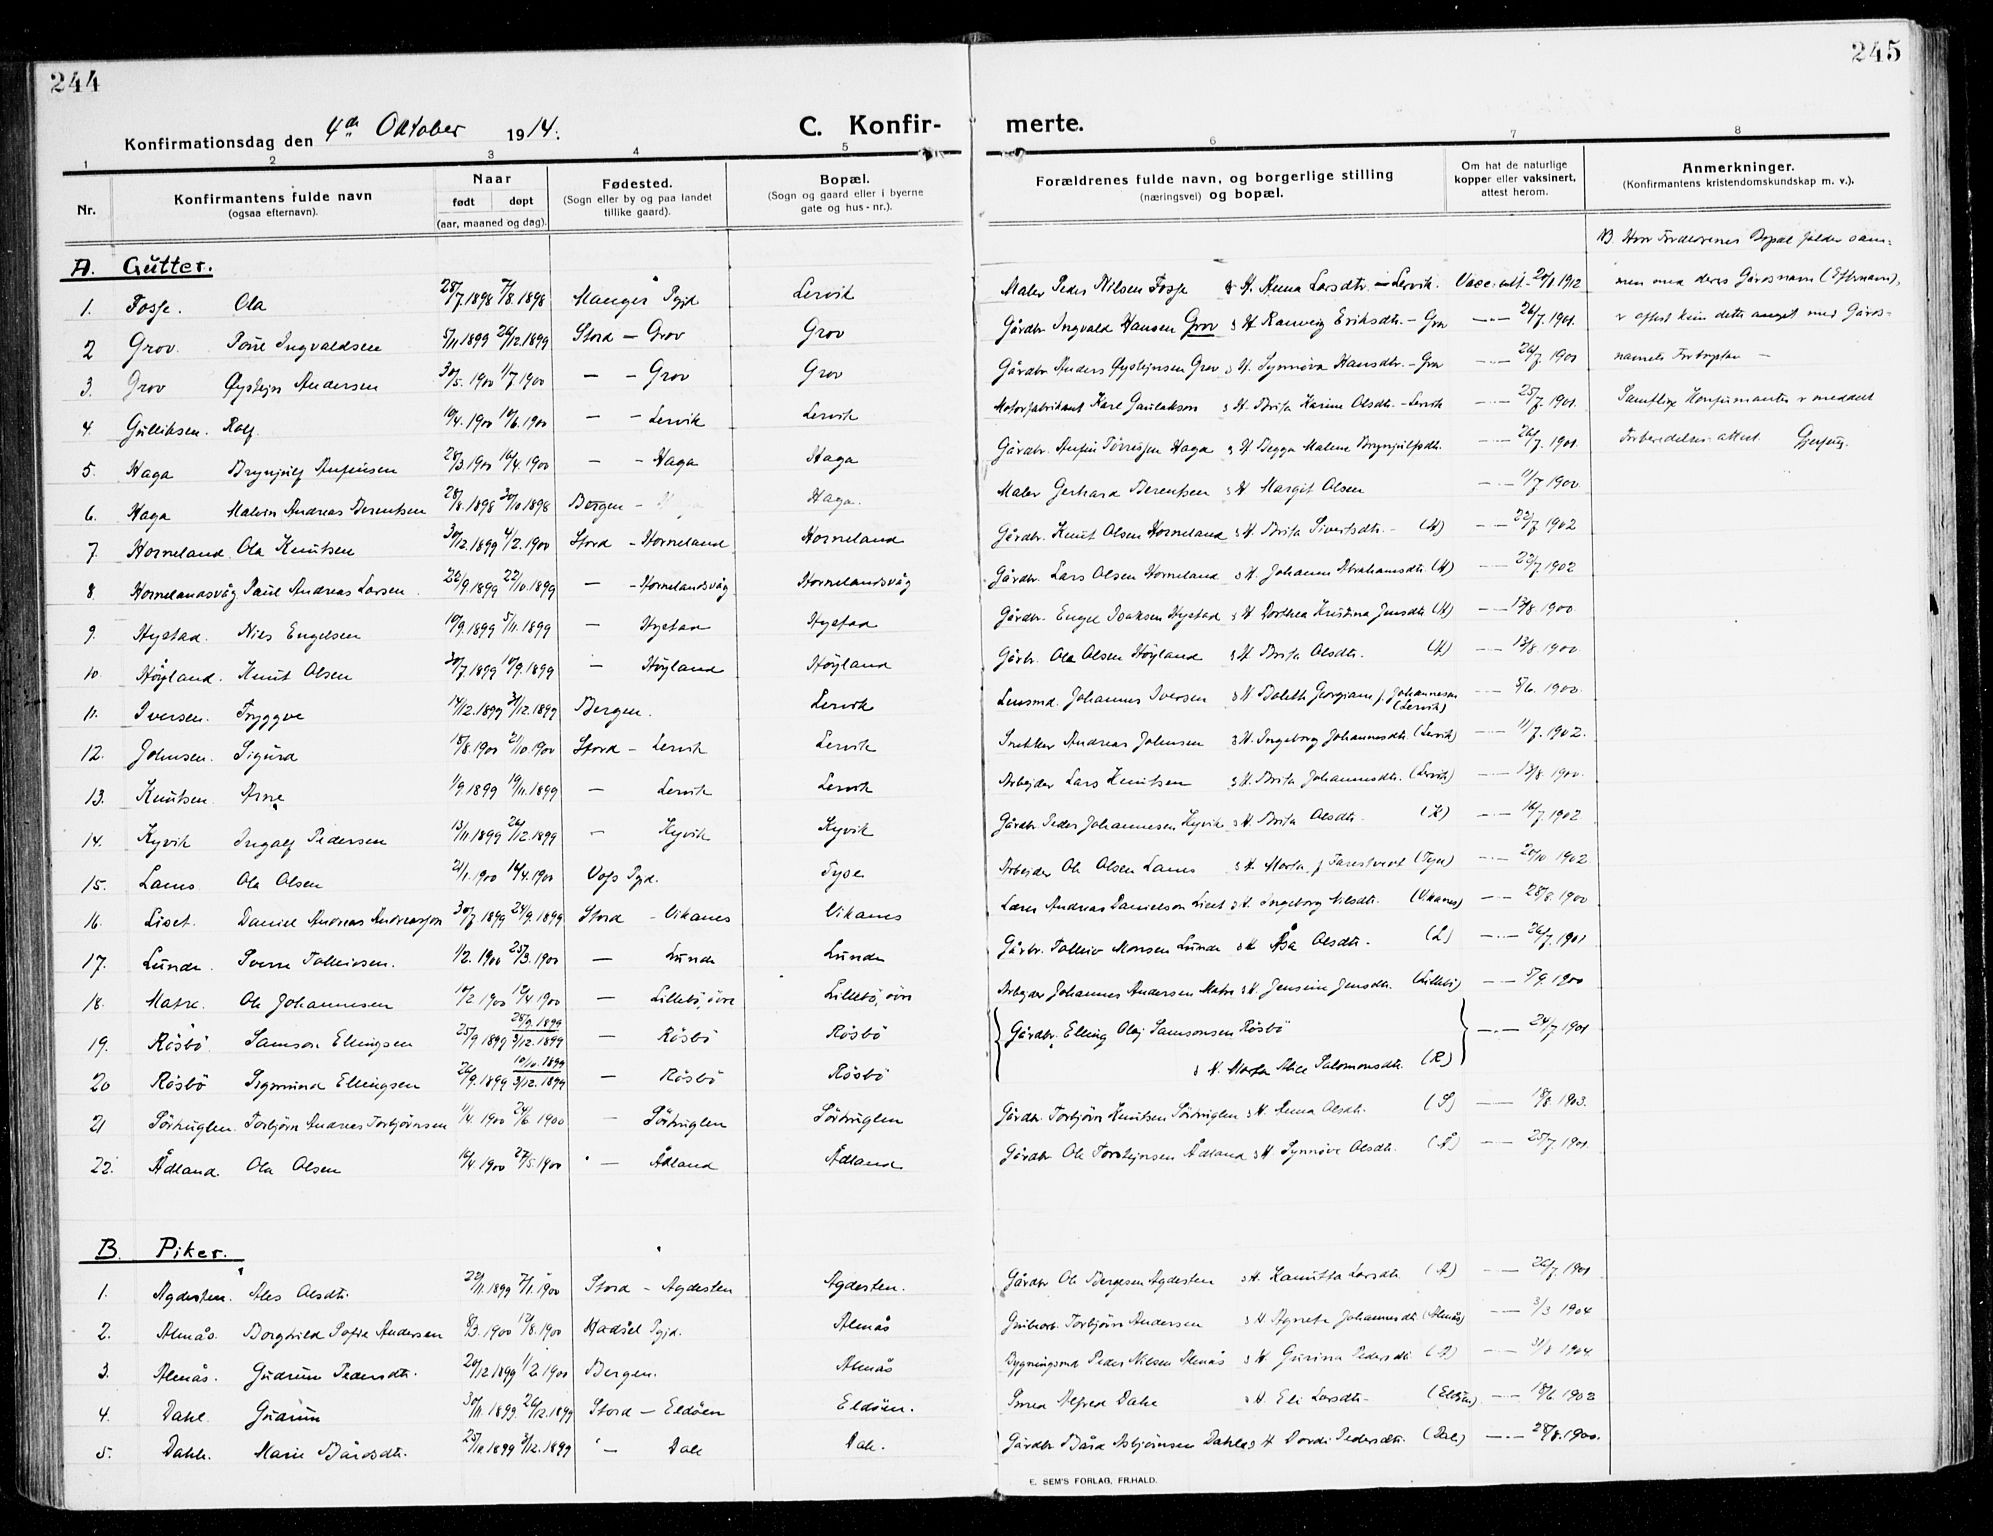 244
245
Konfirmationsdag den 4de Oktober 1914.
C. Konfir- merte.
1 2 3 4 5 6 7 8
Nr.
Konfirmantens fulde navn
(ogsaa efternavn).
Naar
født døpt
(aar, maaned og dag).
Fødested.
(Sogn eller by og paa landet
tillike gaard).
Bopæl.
(Sogn og gaard eller i byerne
gate og hus-nr.).
Forældrenes fulde navn, og borgerlige stilling
(næringsvei) og bopæl.
Om hat de naturlige
kopper eller vaksinert,
attest herom.
Anmerkninger.
(Konfirmantens kristendomskundskap m. v.).
NB. Hvor Forældrenes Bopæl falder sam-
men med deres Gårdsnavn (Efternavn),
r oftest kun dette anført med Gårds-
Samtlige Konfirmanter r meddelt
A. Gutter.
1. Fosse. Ola 28/7 1898 7/8. 1898 Manger Pgjd Lervik Maler Peder Nilsen Fosse & H. Anna Larsdtr. - Lervik. Vacc. 20/11 1912
2 Grov. Ingvaldsen 5/11. 1899 26/12. 1899 Stord - Grov Grov Gårdbr. Ingvald Hansen Grov & H. Ranveig Eriksdtr. - Grov 26/7. 1901.
3. Grov Øystejn Andersen 30/5. 1900 1/7 1900 - - Grov Grov Gårdbr. Anders Øystejnsen Grov & H. Synnøva Hansdtr. - Grov 26/7 1901
4. Gulliksen. Rolf. 10/4. 1900 10/6. 1900 - - Lervik Lervik Motorfabrikant Karl & H. Brita Karine Olsdtr. - Lervik 25/7. 1901.
5. Haga Brynjulf 28/3. 1900 16/4. 1900 - - Haga Haga Gårdbr. Haga & H. Malene Brynjulfsdtr. 26/7. 1901.
6. Haga Malvin Andreas Berentsen 28/8. 1898 30/10 1898 Bergen - Haga. Maler Gerhard Berentsen & H Margit Olsen 11/7 1900
7. Horneland. Ola Knutsen 30/12. 1899 4/2. 1900 Stord - Horneland Horneland Gårdbr. Knut Olsen Horneland & H. Brita Sivertsdtr. - (H) 22/7 1902
8. Hornelandsvåg Paul Andreas Larsen. 22/9. 1899 22/10. 1899 - - Hornelandsvåg Hornelandsvåg Gårdbr. Lars Olsen Horneland & H. Johanna Abrahamsdtr. (H) 22/7 1902
9. Hystad. Nils Engelsen 10/9. 1899 5/11. 1899 - Hystad Hystad Gårdbr. Engel Isaksen Hystad & H Dorthea Kristina Jensdtr. (H) 13/8 1900
10. Høyland. Knut Olsen 30/7. 1899 10/9. 1899 - Høyland Høyland Gårbr. Ola Olsen Høyland & H. Brita Olsdtr. (H) 13/8 1900
11. Iversen. Tryggve 14/12. 1899 31/12. 1899 Bergen. Lervik Lensmd. Johannes Iversen & H Georgiane f. Johannesen (Lervik) 5/6. 1900.
12. Johnsen. Sigurd 18/8. 1900 21/10. 1900 Stord - Lervik Lervik Snekker Andreas Johnsen & H. Ingeborg Johannesdtr. (Lervik) 11/7. 1902.
13. Knutsen. Arne 1/9 1899 19/11. 1899 - Lervik Lervik Arbejder Lars Knutsen & H. Brita Johannesdtr. (Lervik) 13/8. 1900.
14. Kyvik Ingolf Pedersen 13/11 1899 26/12. 1899 - Kyvik Kyvik Gårdbr Peder Johannesen Kyvik & H. Brita Olsdtr. (K) 16/7 1902
15. Lams Ola Olsen 21/1. 1900 16/4. 1900 Voss Pgjd. Tyse Arbejder Ole Olsen Lams & H. Marta f. Farestveit (Tyse) 20/10 1902
16. Liset. Daniel Andreas Andreassen 30/7. 1899 24/9. 1899 Stord - Vikanes Vikanes Lærer Andreas Danielsen Liset & H. Ingeborg Nilsdtr. (Vikanes) 28/8. 1900
17. Lunde. Sverre Tolleivsen. 1/2. 1900 25/3. 1900 - Lunde Lunde Gårbr. Tolleiv Monsen Lunde & H Åsa Olsdtr. (L) 26/7. 1901
18. Matre. Ole Johannesen 10/2 1900 12/4 1900 - Lillebö, övre Lillebö, övre Arbejder Johannes Andersen Matre & H. Jensine Jensdtr. (Lillebö) 5/9. 1900
19. Rösbö. Samson Ellingsen 25/9 1899 28/9. 1899 3/12. 1899 - Rösbö Rösbö Gårdbr. Elling Olaj Samsonsen Rösbö 24/7 1901
20 Rösbö Sigmund Ellingsen 26/9. 1899 10/10. 1899 3/12. 1899 - Rösbö Rösbö & H. Marta Alice Salomonsdtr. (R)
21 Sörhuglen. Torbjørn Andreas Torbjørnsen 11/4. 1900 24/6 1900 - Sörhuglen Sörhuglen Gårdbr. Torbjørn Knutsen Sörhuglen & H. Anna Olsdtr. (S) 18/8. 1903.
22. Ådland. Ola Olsen 10/4. 1900 27/5. 1900 - Ådland Ådland Gårdbr Ole Torstejnsen Ådland & H Synnøve Olsdtr. (Å) 25/7. 1901.
B. Piker.
1. Agdesten. Ales Olsdtr. 22/11. 1899 7/1. 1900 Stord - Agdesten Agdesten. Gårdbr Ole Bergesen Agdesten & H. Kanutta Larsdtr. (A) 26/7. 1901
2. Almås. Borghild Sofie Andersen 8/3. 1900 12/8. 1900 Hadsel Pgjd. Almås Torbjørn Andersen & H Agnete Johannesdtr. (Almås) 3/3 1904
3. Almås. Gudrun Pedersdtr. 20/12 1899 1/2. 1900 Bergen. Almås Bygningsmd Peder Nilsen Almås & H. Gurina Pedersdtr (A) 31/8 1904
4. Dahl. Gudrun 30/11. 1899. 26/12. 1899 Stord - Eldöen Eldöen. Smed Alfred Dahl & H. Eli Larsdtr. (Eldöen) 18/6 1902
5. Dahle. Marie Bårdsdtr. 25/10 1899 3/12. 1899 - Dale Dale. Gårdbr Bård Asbjørnsen Dahle & H Dordi Pedersdtr. (Dale) 28/8. 1900.
E. SEM'S FORLAG, FR.HALD.